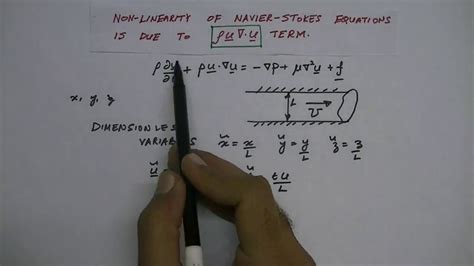 NON-LINEARITY OF NAVIER-STOKES EQUATIONS
IS DUE TO ρu∇·u TERM.
+ ρu·∇u = -∇P + μ∇²u + f
x, y, z
L
U
DIMENSIONLES
VARIABLES x̃ = x/L ỹ = y/L z̃ = z/L
ũ
tu/L